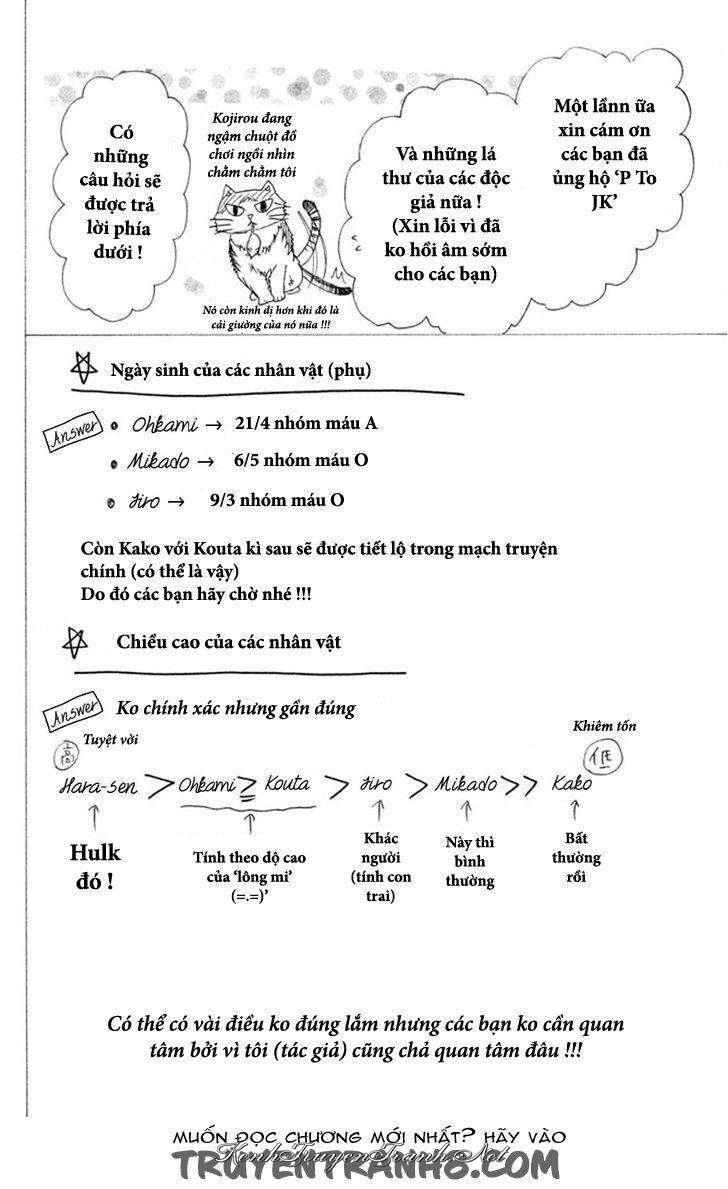 Một lầnn ữa
xin cám ơn
các bạn đã
ủng hộ 'P To
JK'
Và những lá
thư của các độc
giả nữa !
(Xin lỗi vì đã
ko hồi âm sớm
cho các bạn)
Kojirou đang
ngậm chuột đồ
chơi ngồi nhìn
chằm chằm tôi
Nó còn kinh dị hơn khi đó là
cái giường của nó nữa !!!
Có
những
câu hỏi sẽ
được trả
lời phía
dưới !
Ngày sinh của các nhân vật (phụ)
Answer • Ohkami → 21/4 nhóm máu A
• Mikado → 6/5 nhóm máu O
• Jiro → 9/3 nhóm máu O
Còn Kako với Kouta kì sau sẽ được tiết lộ trong mạch truyện
chính (có thể là vậy)
Do đó các bạn hãy chờ nhé !!!
Chiều cao của các nhân vật
Answer Ko chính xác nhưng gần đúng
Tuyệt vời
高
Khiêm tốn
低
Hara-sen > Ohkami ≧ Kouta > Jiro > Mikado >> Kako
Hulk
đó !
Tính theo dộ cao
của 'lông mi'
(=.=)'
Khác
người
(tính con
trai)
Này thì
bình
thường
Bất
thường
rồi
Có thể có vài điều ko đúng lắm nhưng các bạn ko cần quan
tâm bởi vì tôi (tác giả) cũng chả quan tâm đâu !!!
MUỐN ĐỌC CHƯƠNG MỚI NHẤT? HÃY VÀO
KenhTruyenTranh.Net
TRUYENTRANH8.COM